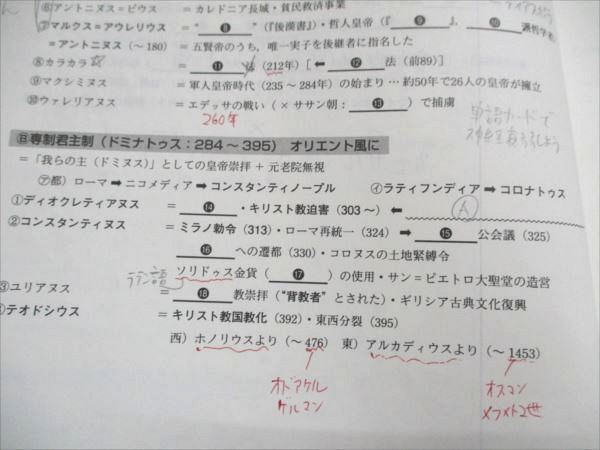 ⑥アントニヌス=ピウス = カレドニア長城・貧民救済事業
⑦マルクス=アウレリウス = “ ❽ ”(『後漢書』)・哲人皇帝(『 ❾ 』、 ❿ 派哲学者
=アントニヌス(～180) = 五賢帝のうち、唯一実子を後継者に指名した
⑧カラカラ☆ = ⓫ 法(212年)[⬅ ⓬ 法(前89)]
⑨マクシミヌス = 軍人皇帝時代(235～284年)の始まり…約50年で26人の皇帝が擁立
⑩ウァレリアヌス = エデッサの戦い(×ササン朝: ⓭ )で捕虜
260年
単語カードで
Ⓑ専制君主制(ドミナトゥス:284～395) オリエント風に
=「我らの主(ドミヌス)」としての皇帝崇拝+元老院無視
㋐都)ローマ➡ニコメディア➡コンスタンティノープル ㋑ラティフンディア➡コロナトゥス
①ディオクレティアヌス = ⓮ ・キリスト教迫害(303～)⬅ A
②コンスタンティヌス = ミラノ勅令(313)・ローマ再統一(324)➡ ⓯ 公会議(325)
⓰ への遷都(330)・コロヌスの土地緊縛令
ラテン語 ソリドゥス金貨( ⓱ )の使用・サン=ピエトロ大聖堂の造営
③ユリアヌス = ⓲ 教崇拝(“背教者”とされた)・ギリシア古典文化復興
④テオドシウス = キリスト教国教化(392)・東西分裂(395)
西)ホノリウスより(～476) 東)アルカディウスより(～1453)
オドアケル
ゲルマン
オスマン
メフメト2世